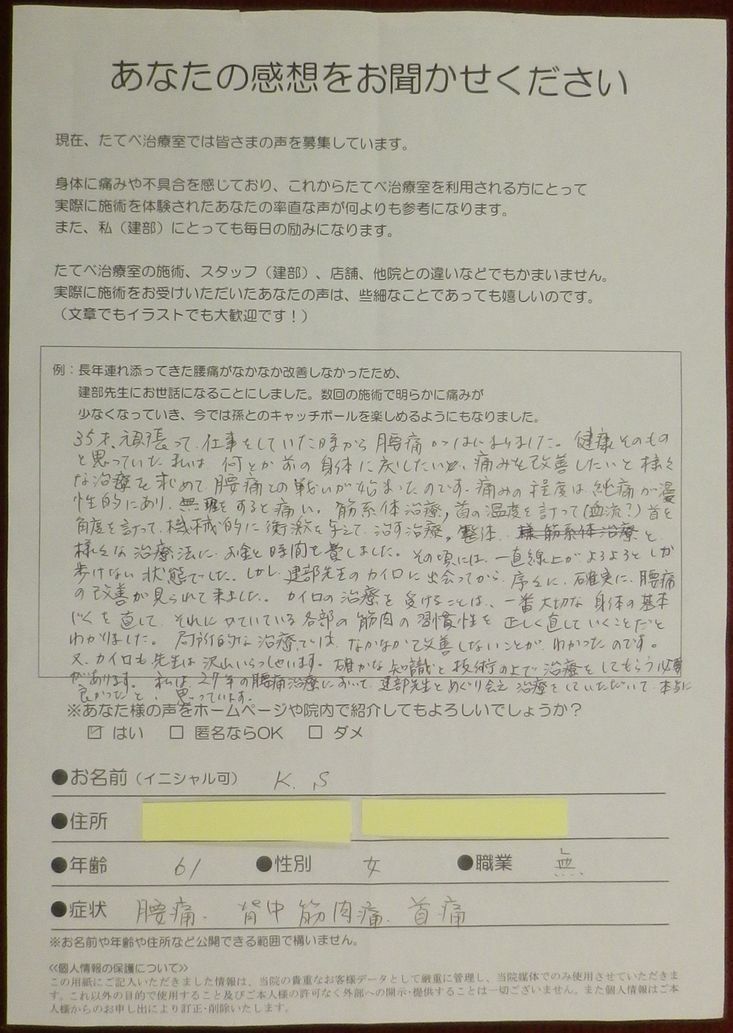 あなたの感想をお聞かせください
現在、たてべ治療室では皆さまの声を募集しています。
身体に痛みや不具合を感じており、これからたてべ治療室を利用される方にとって
実際に施術を体験されたあなたの率直な声が何よりも参考になります。
また、私（建部）にとっても毎日の励みになります。
たてべ治療室の施術、スタッフ（建部）、店舗、他院との違いなどでもかまいません。
実際に施術をお受けいただいたあなたの声は、些細なことであっても嬉しいのです。
（文章でもイラストでも大歓迎です！）
例：長年連れ添ってきた腰痛がなかなか改善しなかったため、
建部先生にお世話になることにしました。数回の施術で明らかに痛みが
少なくなっていき、今では孫とのキャッチボールを楽しめるようにもなりました。
35才、頑張って仕事をしていた時から腰痛がはじまりました。健康そのもの
と思っていた私は何とか前の身体に戻したい、痛みを改善したいと様々
な治療を求めて腰痛との戦いが始まったのです。痛みの程度は鈍痛が慢
性的にあり、無理をすると痛い。筋系体治療，首の温度を計って(血流？)首を
角度を計って、機械的に衝激を与えて治す治療，整体、筋系体治療と
様々な治療法に、お金と時間を費しました。その頃には、一直線上がよろよろとしか
歩けない状態でした。しかし、建部先生のカイロに出会ってから、序々に、確実に、腰痛
の改善が見られて来ました。カイロの治療を受けることは、一番大切な身体の基本
じくを直して、それに付いている各部の筋肉の習慣性を正しく直していくことだと
わかりました。局所的な治療では、なかなか改善しないことがわかったのです。
又、カイロも先生は沢山いらっしゃいます。確かな知識と技術の上で治療をしてもらう必要
があります。私は27年の腰痛治療において、建部先生とめぐり会え治療をしていただいて、本当に
良かったと、思っています。
※あなた様の声をホームページや院内で紹介してもよろしいでしょうか？
☑ はい □ 匿名ならOK □ ダメ
●お名前（イニシャル可） K.S
●住所
●年齢 61 ●性別 女 ●職業 無
●症状 腰痛、背中筋肉痛、首痛
※お名前や年齢や住所など公開できる範囲で構いません。
≪個人情報の保護について≫
この用紙にご記入いただきました情報は、当院の貴重なお客様データとして厳重に管理し、当院媒体でのみ使用させていただきま
す。これ以外の目的で使用すること及びご本人様の許可なく外部への開示・提供することは一切ございません。また個人情報はご本
人様からのお申し出により訂正・削除いたします。